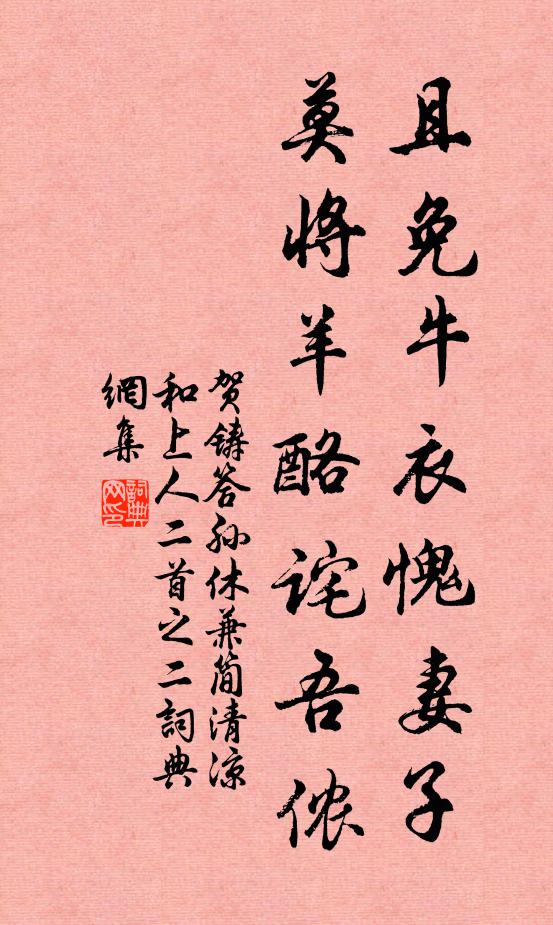 且免牛衣愧妻子
莫将羊酪诧吾侬
贺铸答孙休兼简清凉
和上人二首之二詞典
網集
詞典
网印